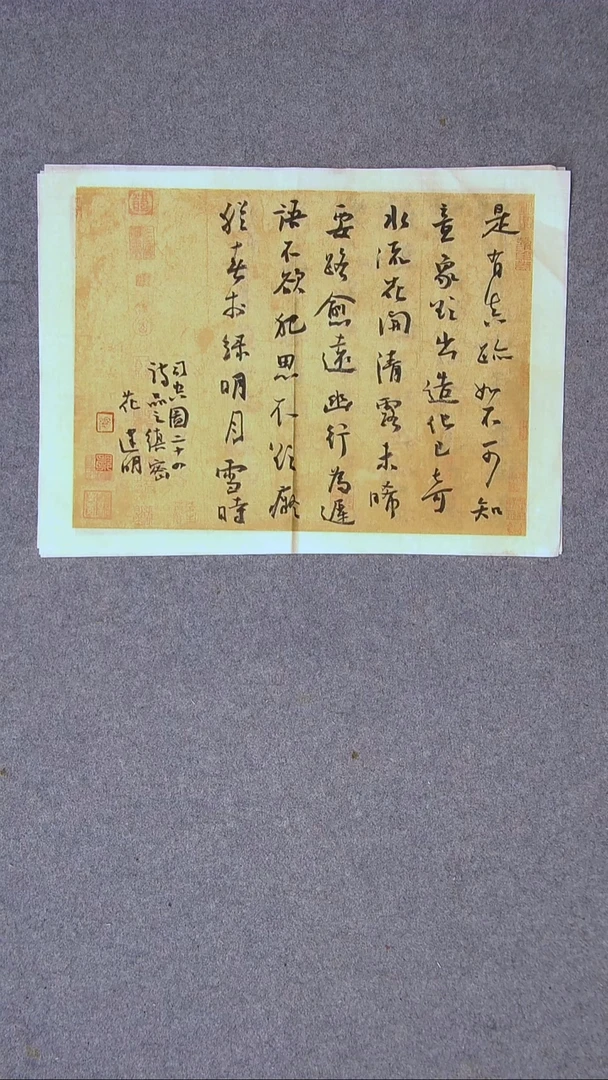 是有真跡如不可知
意象欲出造化已奇
水流花開清露未晞
要路愈遠幽行為遲
語不欲犯思不欲癡
猶春於綠明月雪時
司空圖二十四
詩品之縝密
花建明